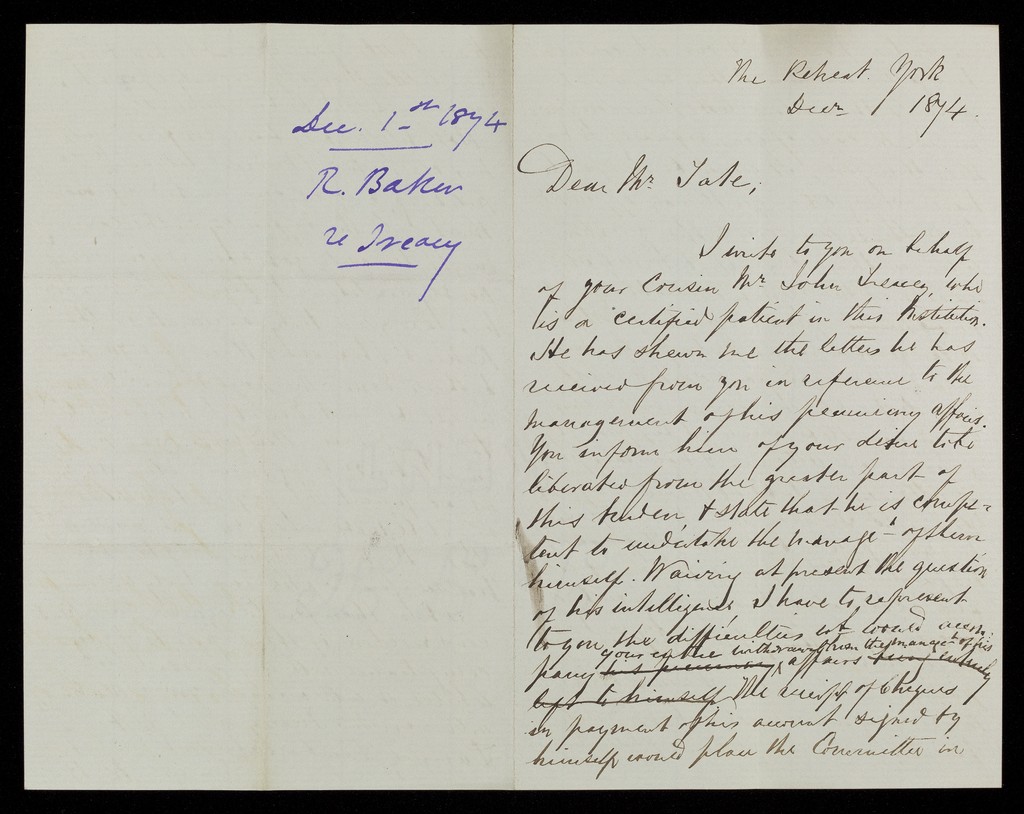 Dec. 1st 1874
R. Baker
re Treacy
The Retreat. York
Decr 1874.
Dear Mr. Tate,
I write to you on behalf
of your Cousin Mr. John Treacy, who
is a certified patient in this Institution.
He has shewn me the letters he has
received from you in reference to the
management of his pecuniary affairs.
You inform him of your desire to be
liberated from the greater part of
this burden, & state that he is compe-
tent to undertake the manage't of them
himself. Waiving at present the question
of his intelligence I have to represent
to you the difficulties wh would accom-
your entire withdrawal from the manage't of his
pany his pecuniary affairs being entirely
left to himself. The receipt of Cheques
in payment of his account signed by
himself would place the Committee in